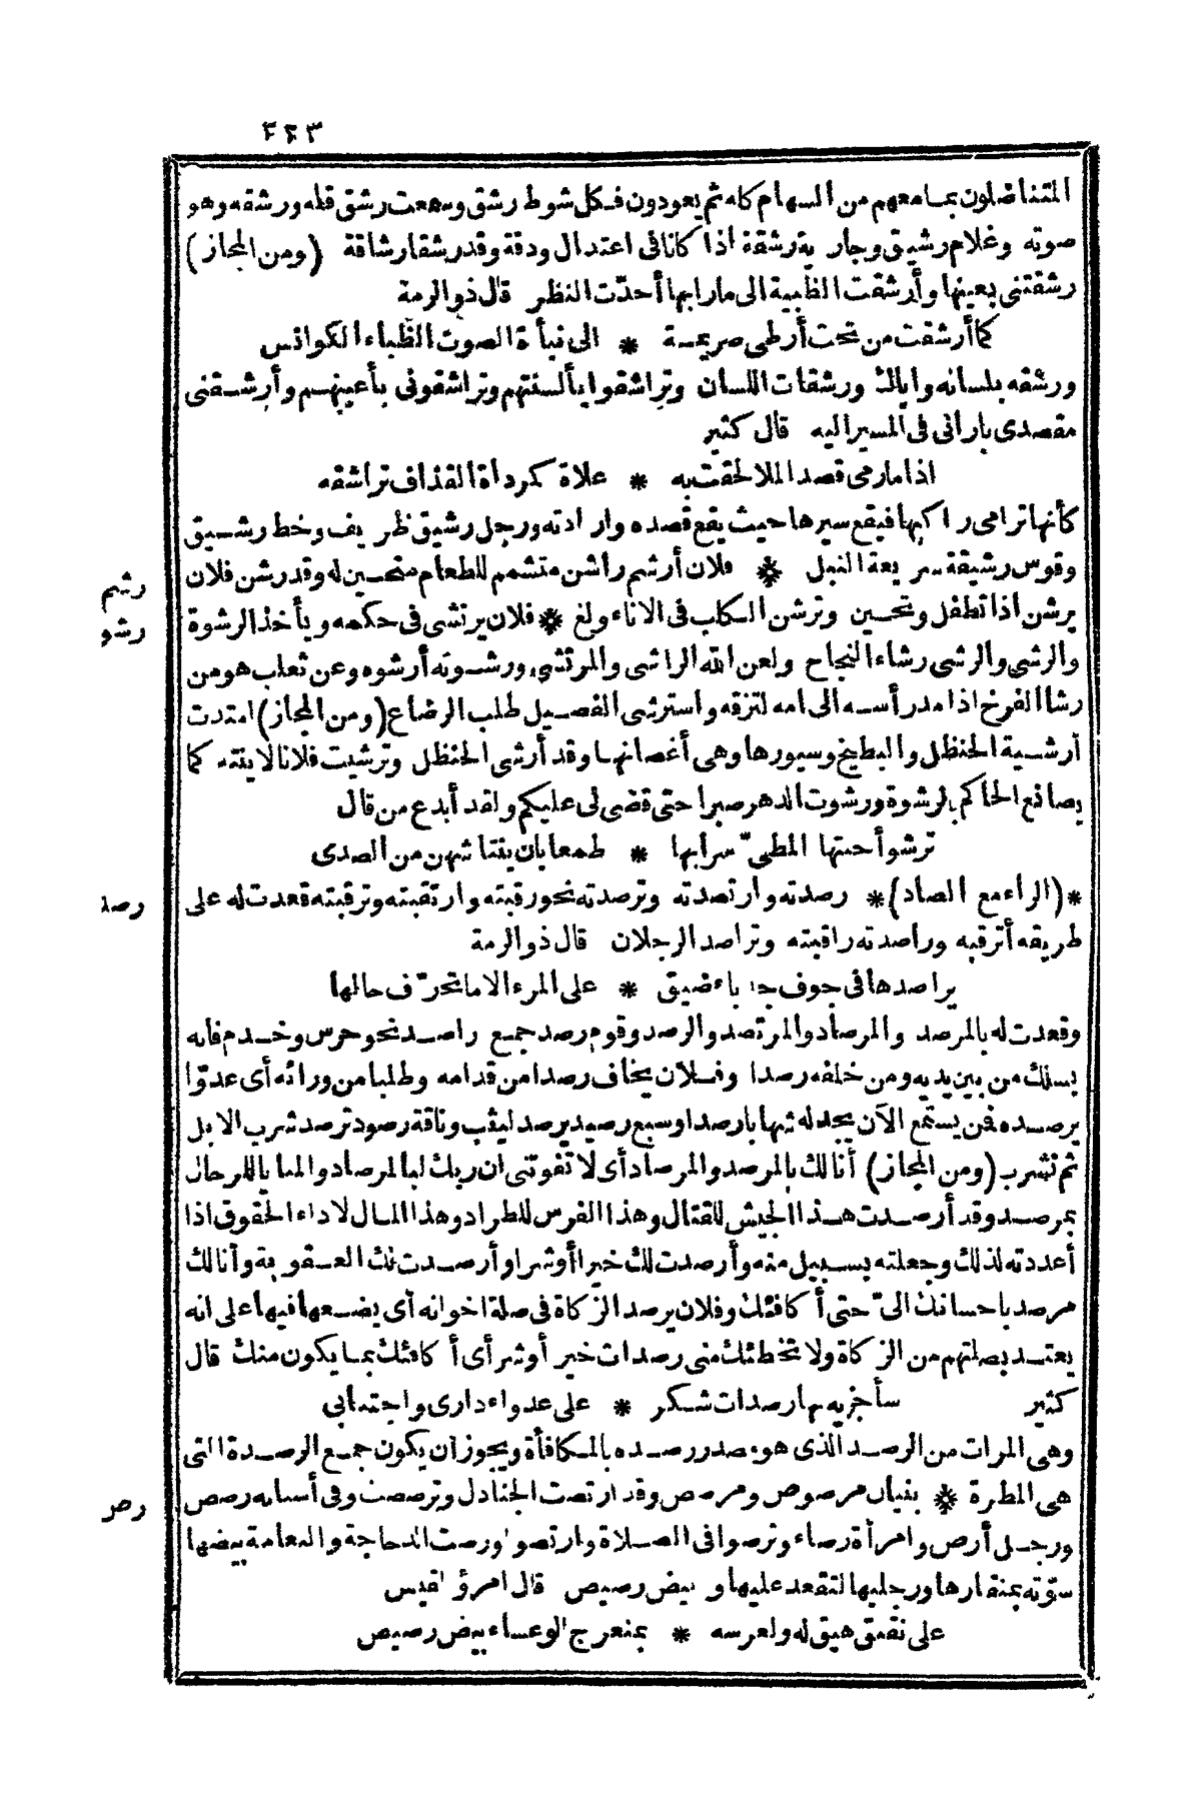 ٢٢٣
المتناضلون بما معهم من السهام كله ثم يعودون فكل شوط رشق وسمعت رشق قلمه ورشقه وهو
صوته وغلام رشيق وجارية رشقة اذا كانا فى اعتدال ودقة وقد رشقا رشاقة (ومن المجاز)
رشقتنى بعينها وأرشقت الظبية الى مارابها أحدّت النظر قال ذو الرمة
كما أرشقت من تحت أرطى صريمة * الى نبأة الصوت الظباء الكوانس
ورشقه بلسانه واياك ورشقات اللسان وتراشقوا بألسنتهم وتراشقونى بأعينهم وأرشقنى
مقصدى بارانى فى المسير اليه قال كثير
اذا ما رمى قصد الملا لحقت به * علاة كمرداة القذاف تراشقه
كأنها ترامى راكبها فيقع سيرها حيث يقع قصده وارادته ورجل رشيق ظريف وخط رشيق
وقوس رشيقة سريعة النبل * فلان أرشم راشن متشمم للطعام متحين له وقد رشن فلان
رشم
يرشن اذا تطفل وتحين وترشن الكلب فى الاناء ولغ * فلان يرتشى فى حكمه ويأخذ الرشوة
رشو
والرشى والرشى رشاء النجاح ولعن الله الراشى والمرتشى ورشوته أرشوه وعن ثعلب هو من
رشا الفرخ اذا مد رأسه الى امه لتزقه واسترشى الفصيل طلب الرضاع (ومن المجاز) امتدت
أرشية الحنظل والبطيخ وسيورها وهى أغصانها وقد أرشى الحنظل وترشيت فلانا لاينته كما
يصانع الحاكم بالرشوة ورشوت الدهر صبرا حتى قضى لى عليكم ولقد أبدع من قال
ترشو أحنتها المطىّ سرابها * طمعا بان ينتاشهن من الصدى
*(الراء مع الصاد)* رصدته وارتصدته وترصدته نحو رقبته وارتقبته وترقبته قعدت له على
رصد
طريقه أترقبه وراصدته راقبته وتراصد الرجلان قال ذو الرمة
يراصدها فى جوف جدباء ضيق * على المرء الا ما تحرّف حالها
وقعدت له بالمرصد والمرصاد والمرتصد والرصد وقوم رصد جمع راصد نحو حرس وخدم فانه
يسلك من بين يديه ومن خلفه رصدا وفلان يخاف رصدا من قدامه وطلبا من ورائه أى عدوّا
يرصده فمن يستمع الآن يجد له شهابا رصدا وسبع رصيد يرصد ليثب وناقة رصود ترصد شرب الابل
ثم تشرب (ومن المجاز) أنا لك بالمرصد والمرصاد أى لا تفوتنى ان ربك لبالمرصاد والمنايا للرجال
بمرصد وقد أرصدت هذا الجيش للقتال وهذا الفرس للطراد وهذا المال لاداء الحقوق اذا
أعددته لذلك وجعلته بسبيل منه وأرصدت لك خيرا أو شرا وأرصدت لك العقوبة وأنا لك
مرصد باحسانك الىّ حتى أكافئك وفلان يرصد الزكاة فى صلة اخوانه أى يضعها فيها على انه
يعتد بصلتهم من الزكاة ولا تخطئك منى رصدات خير أو شر أى أكافئك بما يكون منك قال
كثير سأجزيه بها رصدات شكر * على عدواء دارى واجتنابى
وهى المرات من الرصد الذى هو مصدر رصده بالمكافأة ويجوز أن يكون جمع الرصدة التى
هى المطرة * بنيان مرصوص ومرصص وقد ارتصت الجنادل وترصصت وفى أسنانه رصص
رصص
ورجل أرص وامرأة رصاء وترصوا فى الصلاة وارتصوا ورصت الدجاجة والنعامة بيضها
سوّته بمنقارها ورجليها لتقعد عليها وبيض رصيص قال امرؤ القيس
على نقنق هيق له ولعرسه * بمنعرج الوعساء بيض رصيص